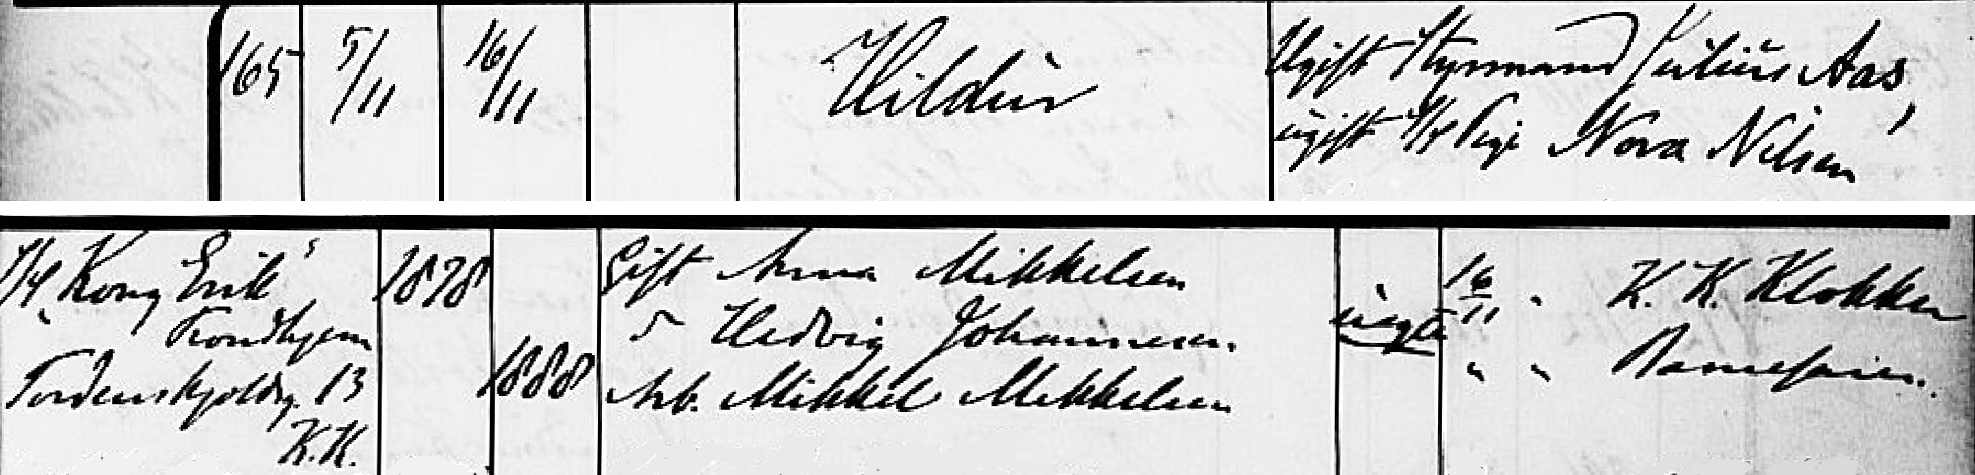 165 5/11 16/11 Hildur Ugift Styrmand Julius Aas,
ugift Pige Nora Nilsen
"Kong Erik" 1878 Gift Anna Mikkelsen uægte 16/11 " K. K. Klokker
Trondhjem 1888 d Hedvig Johannesen " "
Tordenskjoldsg. 13 Arb. Mikkel Mikkelsen
K.K.